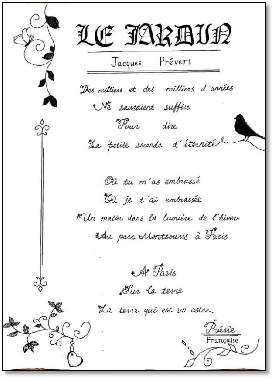 LE JARDIN
Jacques Prévert
Des milliers et des milliers d'années
Ne sauraient suffire
Pour dire
La petite seconde d'éternité
Où tu m'as embrassé
Où je t'ai embrassée
Un matin dans la lumière de l'hiver
Au parc Montsouris à Paris
A Paris
Sur la terre
La terre qui est un astre.
Poésie
Française